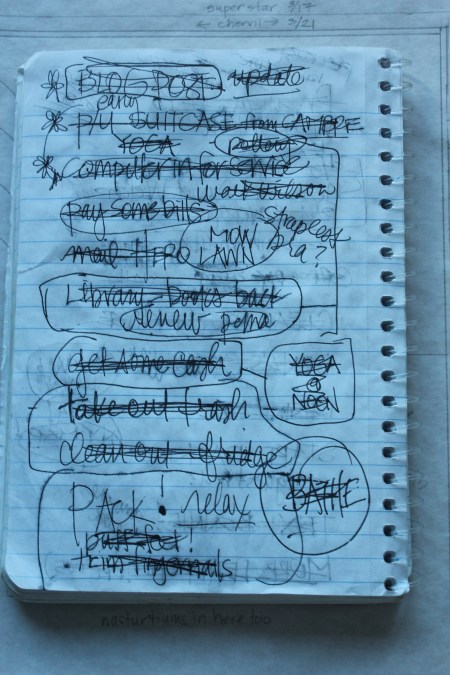 super star 3/17
← chervil → 3/21
* BLOG POST update
early
* P/U SUITCASE from CAMBRE
YOGA
* computer in for service
walk wilson
pay some bills
strapless
bra?
MOW
LAWN
mail HERO
Library books back
renew
get some cash
YOGA
@
NOON
take out trash
clean out fridge
BATHE
PACK! relax
buff feet!
trim fingernails
nasturtiums in here too